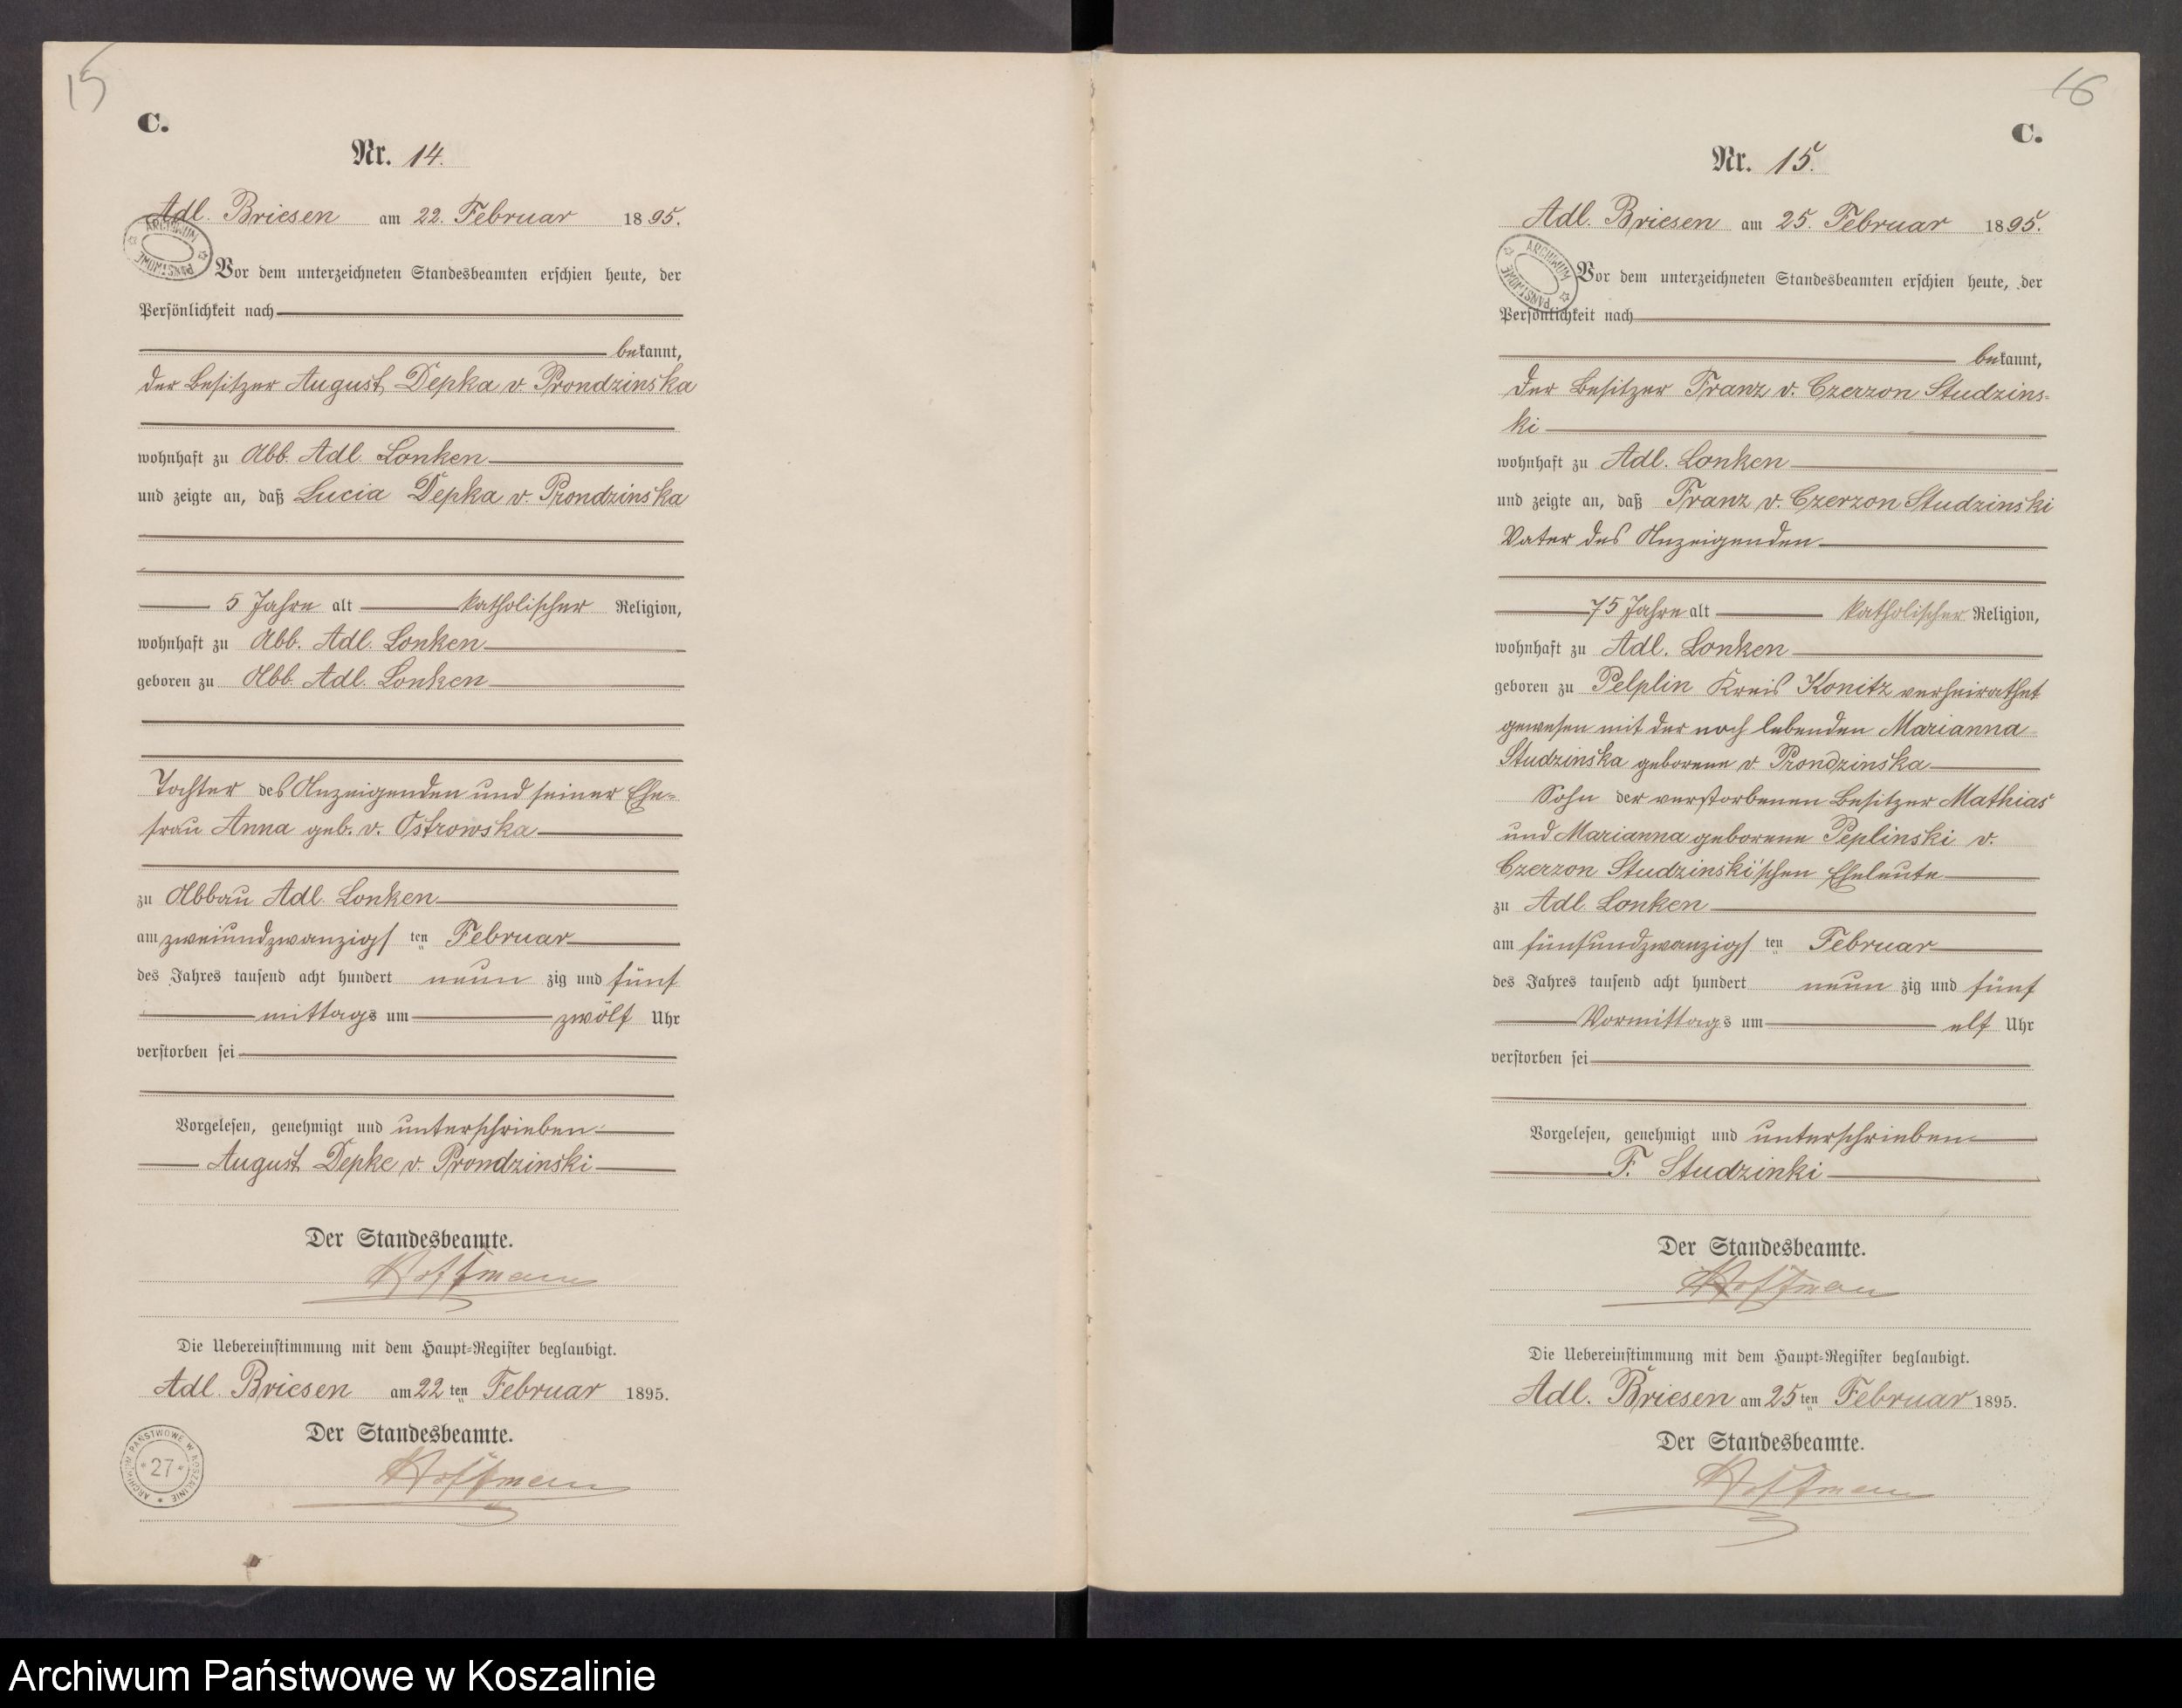 15
C.
Nr. 14.
Adl. Briesen am 22. Februar 1895.
ARCHIWUM PAŃSTWOWE
Vor dem unterzeichneten Standesbeamten erschien heute, der
Persönlichkeit nach
bekannt,
der Besitzer August Depka v. Prondzinska
wohnhaft zu Abb. Adl. Lonken
und zeigte an, daß Lucia Depka v. Prondzinska
5 Jahre alt katholischer Religion,
wohnhaft zu Abb. Adl. Lonken
geboren zu Abb. Adl. Lonken
Tochter des Anzeigenden und seiner Ehe-
frau Anna geb. v. Ostrowska
zu Abbau Adl. Lonken
am zweiundzwanzigs ten Februar
des Jahres tausend acht hundert neun zig und fünf
mittags um zwölf Uhr
verstorben sei
Vorgelesen, genehmigt und unterschrieben
August Depke v. Prondzinski
Der Standesbeamte.
Hoffmann
Die Uebereinstimmung mit dem Haupt-Register beglaubigt.
Adl. Briesen am 22 ten Februar 1895.
Der Standesbeamte.
Hoffmann
ARCHIWUM PAŃSTWOWE W KOSZALINIE * 27 *
16
C.
Nr. 15.
Adl. Briesen am 25. Februar 1895.
ARCHIWUM PAŃSTWOWE
Vor dem unterzeichneten Standesbeamten erschien heute, der
Persönlichkeit nach
bekannt,
der Besitzer Franz v. Czerzon Studzins-
ki
wohnhaft zu Adl. Lonken
und zeigte an, daß Franz v. Czerzon Studzinski
Vater des Anzeigenden
75 Jahre alt katholischer Religion,
wohnhaft zu Adl. Lonken
geboren zu Pelplin Kreis Konitz verheirathet
gewesen mit der noch lebenden Marianna
Studzinska geborene v. Prondzinska
Sohn der verstorbenen Besitzer Mathias
und Marianna geborene Peplinski v.
Czerzon Studzinski'schen Eheleute
zu Adl. Lonken
am fünfundzwanzigs ten Februar
des Jahres tausend acht hundert neun zig und fünf
Vormittags um elf Uhr
verstorben sei
Vorgelesen, genehmigt und unterschrieben
F. Studzinki
Der Standesbeamte.
Hoffmann
Die Uebereinstimmung mit dem Haupt-Register beglaubigt.
Adl. Briesen am 25 ten Februar 1895.
Der Standesbeamte.
Hoffmann
Archiwum Państwowe w Koszalinie